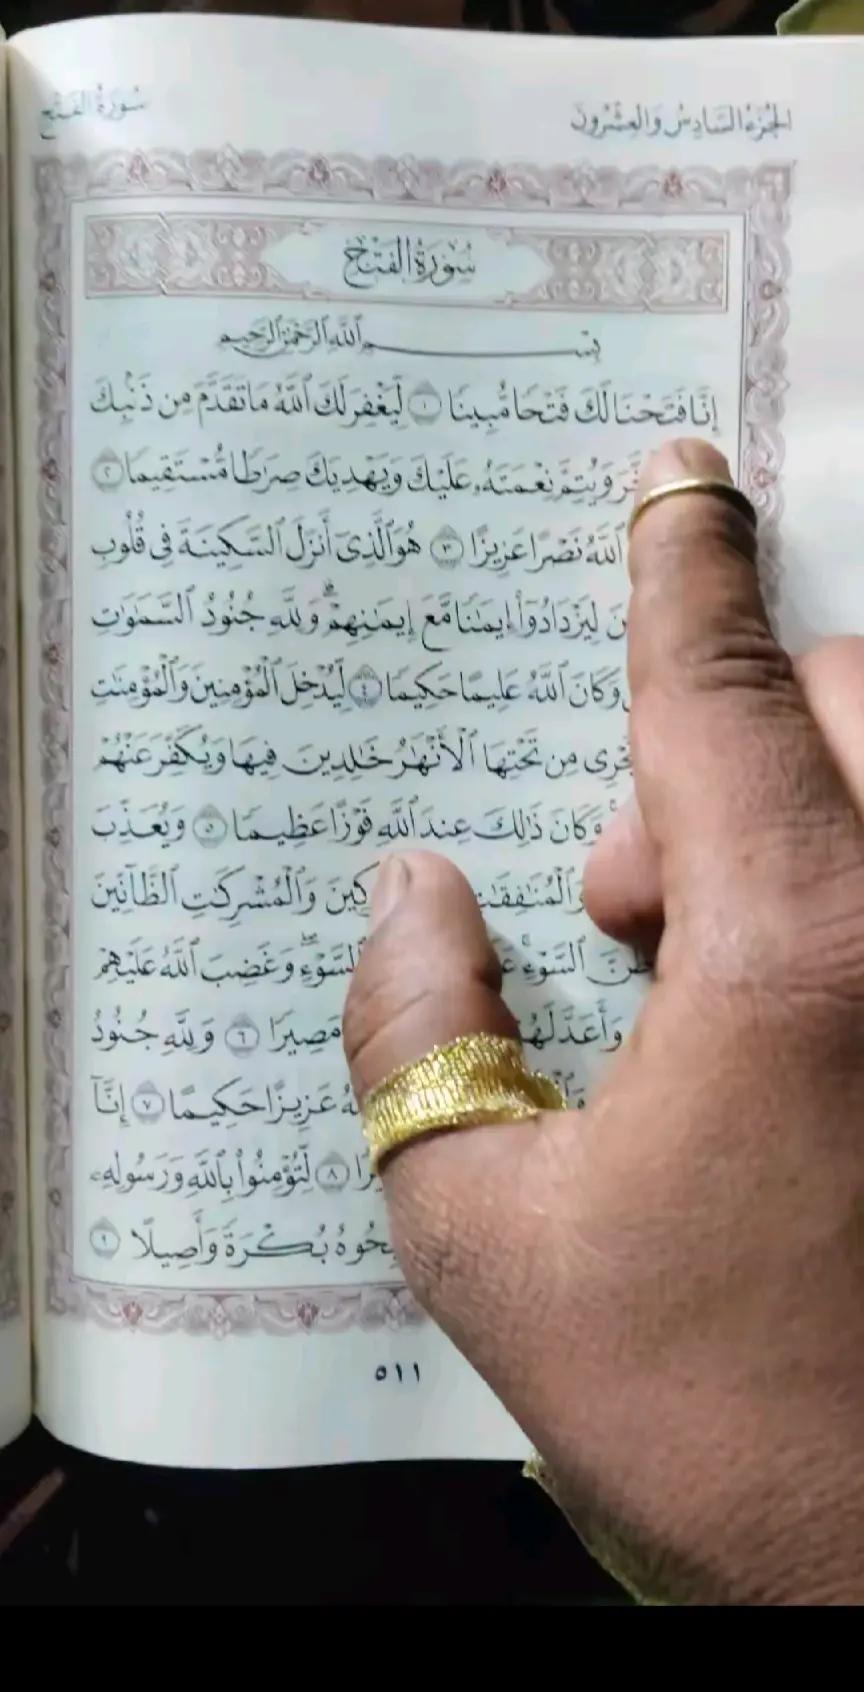 الجُزْءُ السَّادِسُ وَالعِشْرُونَ
سُورَةُ الفَتْحِ
سُورَةُ الفَتْحِ
بِسْمِ ٱللَّهِ ٱلرَّحْمَٰنِ ٱلرَّحِيمِ
إِنَّا فَتَحْنَا لَكَ فَتْحًا مُّبِينًا ١ لِّيَغْفِرَ لَكَ ٱللَّهُ مَا تَقَدَّمَ مِن ذَنۢبِكَ
وَيُتِمَّ نِعْمَتَهُۥ عَلَيْكَ وَيَهْدِيَكَ صِرَٰطًا مُّسْتَقِيمًا ٢
ٱللَّهُ نَصْرًا عَزِيزًا ٣ هُوَ ٱلَّذِىٓ أَنزَلَ ٱلسَّكِينَةَ فِى قُلُوبِ
لِيَزْدَادُوٓا۟ إِيمَٰنًا مَّعَ إِيمَٰنِهِمْ ۗ وَلِلَّهِ جُنُودُ ٱلسَّمَٰوَٰتِ
وَكَانَ ٱللَّهُ عَلِيمًا حَكِيمًا ٤ لِّيُدْخِلَ ٱلْمُؤْمِنِينَ وَٱلْمُؤْمِنَٰتِ
مِن تَحْتِهَا ٱلْأَنْهَٰرُ خَٰلِدِينَ فِيهَا وَيُكَفِّرَ عَنْهُمْ
وَكَانَ ذَٰلِكَ عِندَ ٱللَّهِ فَوْزًا عَظِيمًا ٥ وَيُعَذِّبَ
وَٱلْمُشْرِكَٰتِ ٱلظَّآنِّينَ
ظَنَّ ٱلسَّوْءِ ۚ ٱلسَّوْءِ ۖ وَغَضِبَ ٱللَّهُ عَلَيْهِمْ
مَصِيرًا ٦ وَلِلَّهِ جُنُودُ
عَزِيزًا حَكِيمًا ٧ إِنَّآ
٨ لِّتُؤْمِنُوا۟ بِٱللَّهِ وَرَسُولِهِۦ
بُكْرَةً وَأَصِيلًا ٩
٥١١